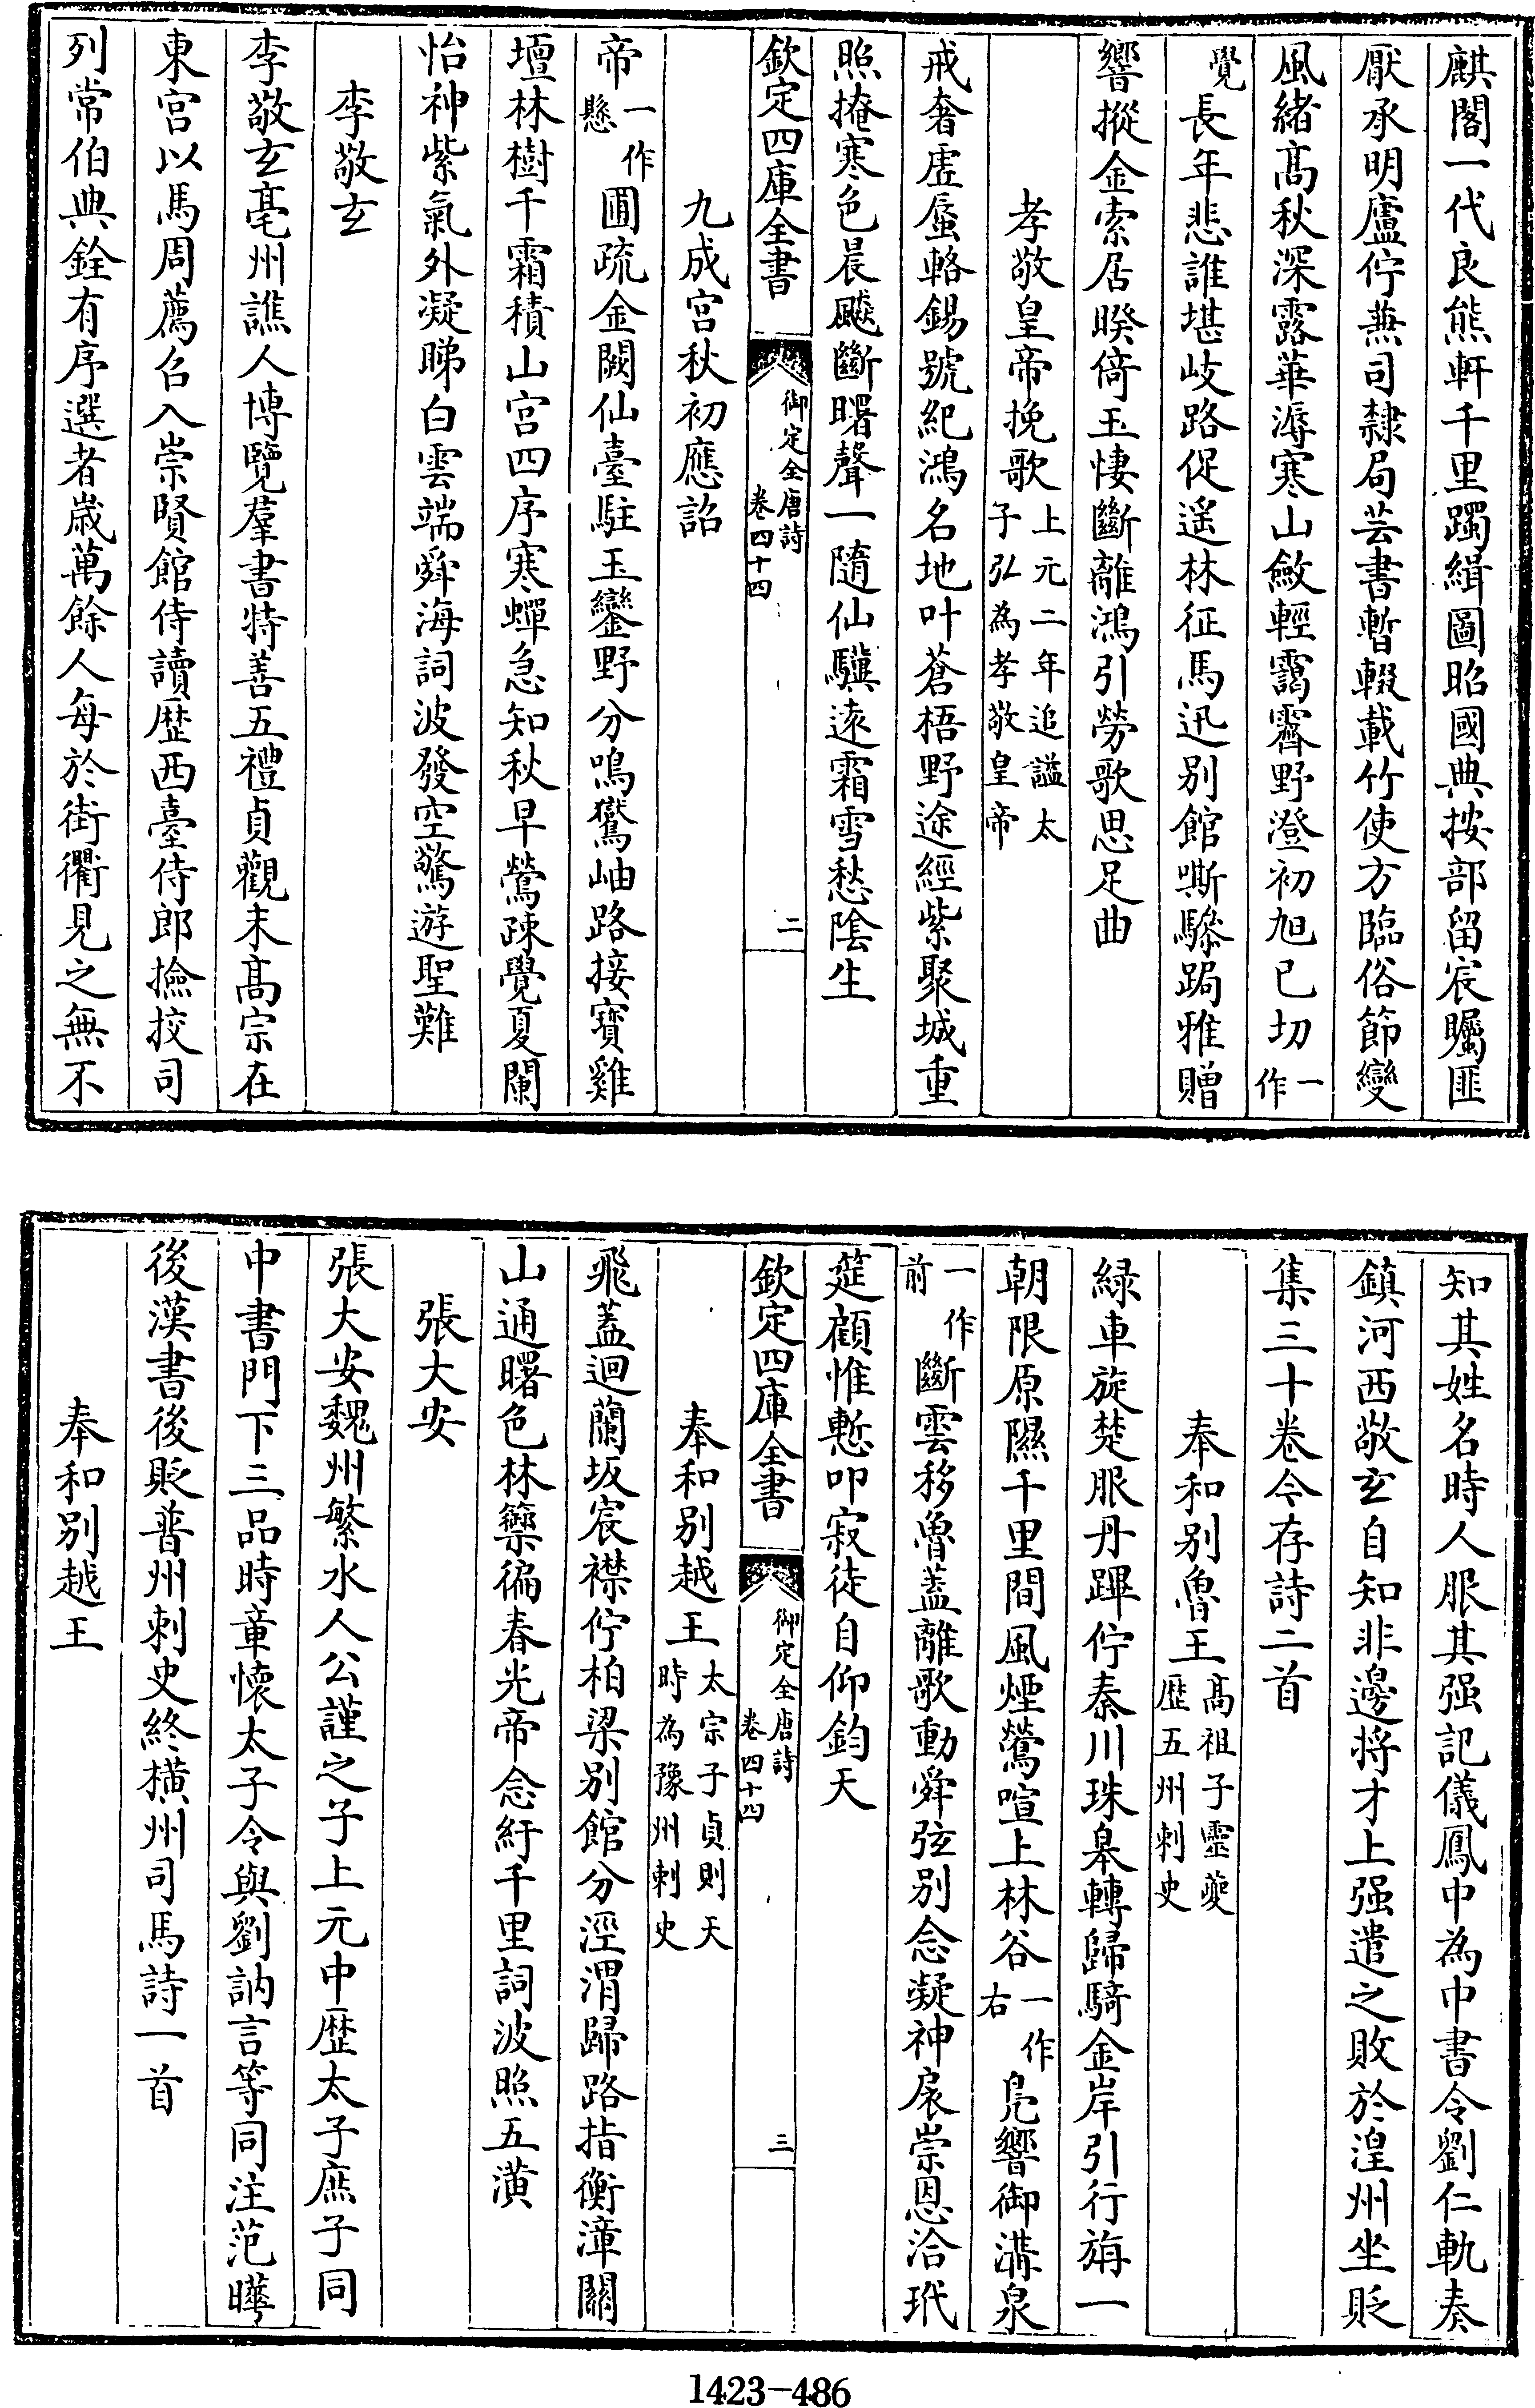 麒閣一代良熊軒千里躅緝圖昭國典按部留宸矚匪
厭承明廬佇兼司隸局芸書暫輟載竹使方臨俗節變
風緒髙秋深露華溽寒山斂輕靄霽野澄初旭已切一作
覺長年悲誰堪岐路促遥林征馬迅别館嘶驂跼雅贈
響摐金索居暌倚玉悽斷離鴻引勞歌思足曲
孝敬皇帝挽歌上元二年追諡太子弘為孝敬皇帝
戒奢虚蜃輅錫號紀鴻名地叶蒼梧野途經紫聚城重
照掩寒色晨飈斷曙聲一隨仙驥逺霜雪愁隂生
欽定四庫全書 御定全唐詩卷四十四 二
九成宫秋初應詔
帝一作懸圃疏金闕仙臺駐玉鑾野分鳴鸑岫路接寳雞
壇林樹千霜積山宫四序寒蟬急知秋早鶯疎覺夏闌
怡神紫氣外凝睇白雲端舜海詞波發空驚遊聖難
李敬玄
李敬玄亳州譙人博覽羣書特善五禮貞觀末髙宗在
東宫以馬周薦召入崇賢館侍讀歴西臺侍郎撿挍司
列常伯典銓有序選者歳萬餘人每於街衢見之無不
知其姓名時人服其强記儀鳳中為中書令劉仁軌奏
鎮河西敬玄自知非邊将才上强遣之敗於湟州坐貶
集三十卷今存詩二首
奉和别魯王髙祖子靈夔歴五州刺史
緑車旋楚服丹蹕佇秦川珠皋轉歸騎金岸引行旃一
朝限原隰千里間風煙鶯喧上林谷一作右鳬響御溝泉
一作前斷雲移魯蓋離歌動舜弦别念凝神扆崇恩洽玳
筵顧惟慙叩寂徒自仰鈞天
欽定四庫全書 御定全唐詩卷四十四 三
奉和别越王太宗子貞則天時為豫州刺史
飛蓋迴蘭坂宸襟佇柏梁别館分涇渭歸路指衡漳關
山通曙色林籞徧春光帝念紆千里詞波照五潢
張大安
張大安魏州繁水人公謹之子上元中歴太子庶子同
中書門下三品時章懷太子令與劉訥言等同注范曄
後漢書後貶普州刺史終横州司馬詩一首
奉和别越王
1423-486